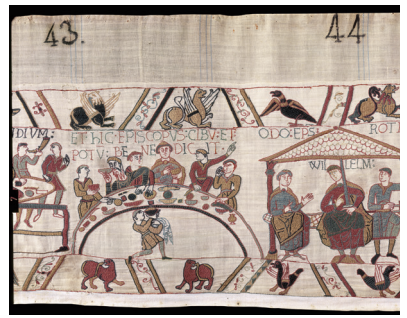 43. 44
DIVM:
ET HIC·EPISCOPVS:CIBV:ET
POTV:BENEDICIT·
ODO:EPS:
ROT
WILLELM: